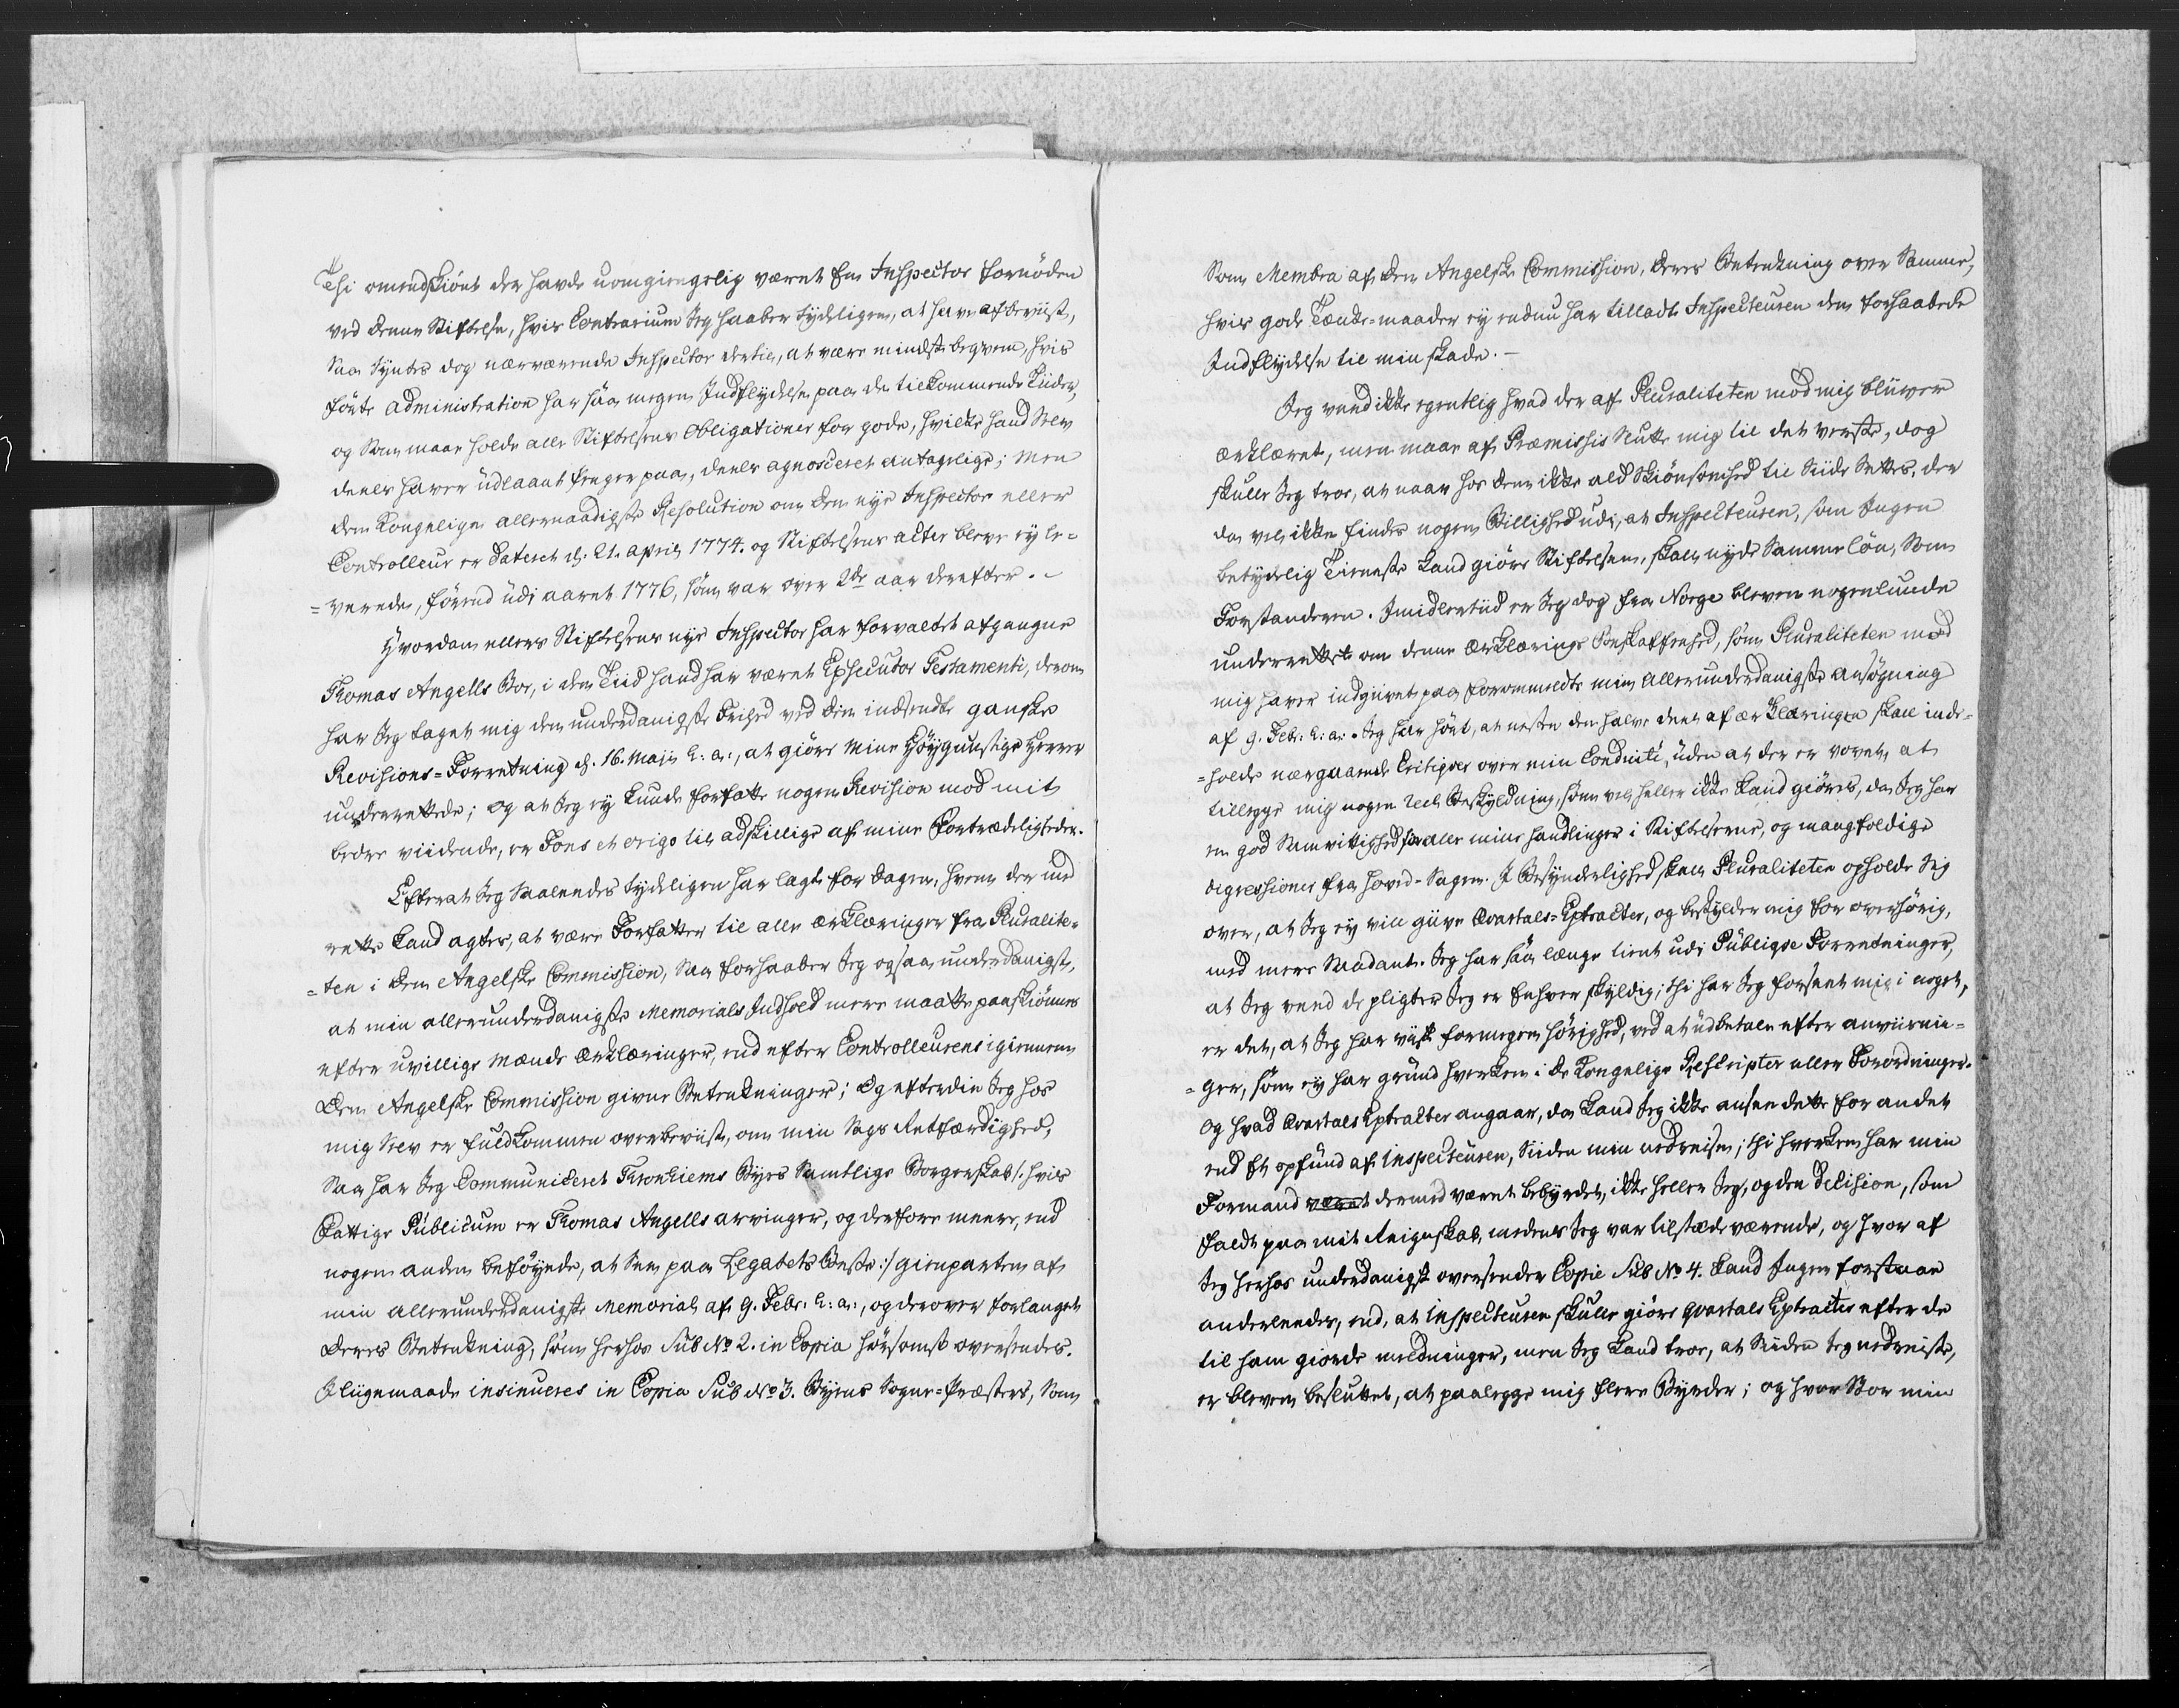 Thi omendskiönt der havde uomgiengelig været En Inspector fornöden
ved denne Stiftelse, hvis Contrarium Jeg haaber tydeligen, at have afbeviist,
Saa Synes dog nærværende Inspector dertil, at være mindst beqvem, hvis
förte Administration har saa megen Indflydelse paa de tilkommende Tiider,
og Som maae holde alle Stiftelsens Obligationer for gode, hvilke hand Selv
deels haver udlaant Penger paa, deels agnosceret antagelige; Men
den Kongelige allernaadigste Resolution om den nye Inspector eller
Controlleur er dateret d: 21. April 1774. og Stiftelsens acter bleve ey le=
=verede, förend udi aaret 1776, som var over 2de aar derefter. -
Hvordan ellers Stiftelsens nye Inspector har forvaltet afgangne
Thomas Angells Boe, i den Tiid hand har været Executor Testamenti, derom
har Jeg taget mig den underdanigste Frihed ved den indsendte ganske
Revisions=Forretning d. 16. Maji h: a:, at giöre Mine Höygunstige Herrer
underrettede; og at Jeg ey kunde forfatte nogen Revision mod mit
bedre viidende, er Fons et origo til adskillige af mine Fortrædeligheder.
Efterat Jeg Saaleedes tydeligen har lagt for Dagen, hvem der med
rette kand agtes, at være Forfatter til alle Erklæringer fra Pluralite=
=ten i den Angelske Commission, Saa forhaaber Jeg ogsaa underdanigst,
at min allerunderdanigste Memorials Indhold mere maatte paaskiönnes
efter uvillige Mænds Erklæringer, end efter Controlleurens igiennem
den Angelske Commission givne Betenkninger; Og efterdie Jeg hos
mig Selv er fuldkommen overbeviist, om min Sags Retfærdighed,
Saa har Jeg Communiceret Tronhiems Byes Samtlige Borgerskab /: hvis
Fattige Publicum er Thomas Angells arvinger, og derfore meere, end
nogen anden beföyede, at See paa Legatets Beste :/ gienparten af
min allerunderdanigste Memorial af 9. Febr: h: a:, og derover forlanget
deres Betenkning, som herhos Sub No 2. in Copia hörsomst oversendes.
Iligemaade insinueres in Copia Sub No 3. Byens Sogne=Præsters, Som
Som Membra af den Angelske Commission, deres Betenkning over Samme,
hvis gode Tænke=maader ey endnu har tilladt Inspecteuren den forhaabede
Indflydelse til min skade. -
Jeg veed ikke egentlig hvad der af Pluraliteten mod mig bliver
Erklæret, men maae af Præmissis Slutte mig til det verste, dog
skulle Jeg troe, at naar hos dem ikke ald Skiönsomhed til Siide Settes, der
da vel ikke findes nogen Billighed udi, at Inspecteuren, som Ingen
betydelig Tieneste kand giöre Stiftelsen, skal nyde Samme lön, Som
Forstanderen. Imidlertiid er Jeg dog fra Norge bleven nogenlunde
underrettet om denne Erklærings Beskaffenhed, som Pluraliteten mod
mig haver indgivet paa forommeldte min Allerunderdanigste Ansögning
af 9. Febr: h: a:. Jeg har hört, at neste den halve deel af Erklæringen skal inde=
=holde nærgaaende Critiqver over min Conduite, uden at der er vovet, at
tillegge mig nogen reel Beskyldning, som vel heller ikke kand giöres, da Jeg har
en god Samvittighed for alle mine handlinger i Stiftelserne, og mangfoldige
degressioner fra Hoved=Sagen. I Besynderlighed skal Pluraliteten opholde Sig
over, at Jeg ey vil give Qvartals=Extracter, og beskylder mig for overhörig,
med mere Saadant. Jeg har saa længe tient udi Publiqve Forretninger,
at Jeg veed de pligter Jeg er Enhver skyldig; thi har Jeg forseet mig i noget,
er det, at Jeg har viist formegen hörighed, ved at udbetale efter anviisnin=
=ger, som ey har grund hverken i de Kongelige Rescripter eller Forordninger.
Og hvad Qvartals Extracter angaar, da kand Jeg ikke ansee dette for andet
end Et opfund af Inspecteuren, Siiden min nedreise; thi hverken har min
Formand været dermed været bebyrdet, ikke heller Jeg, og den Decision, som
faldt paa mit Regnskab, medens Jeg var tilstæde værende, og hvor af
Jeg herhos underdanigst oversender Copie Sub No 4. kand Ingen forstaae
anderleedes, end, at Inspecteuren skulle giöre qvartals Extracter efter de
til ham giorde meldninger, men Jeg kand troe, at Siiden Jeg nedreiste,
er bleven besluttet, at paalegge mig flere Byrder; og hvor Stor min